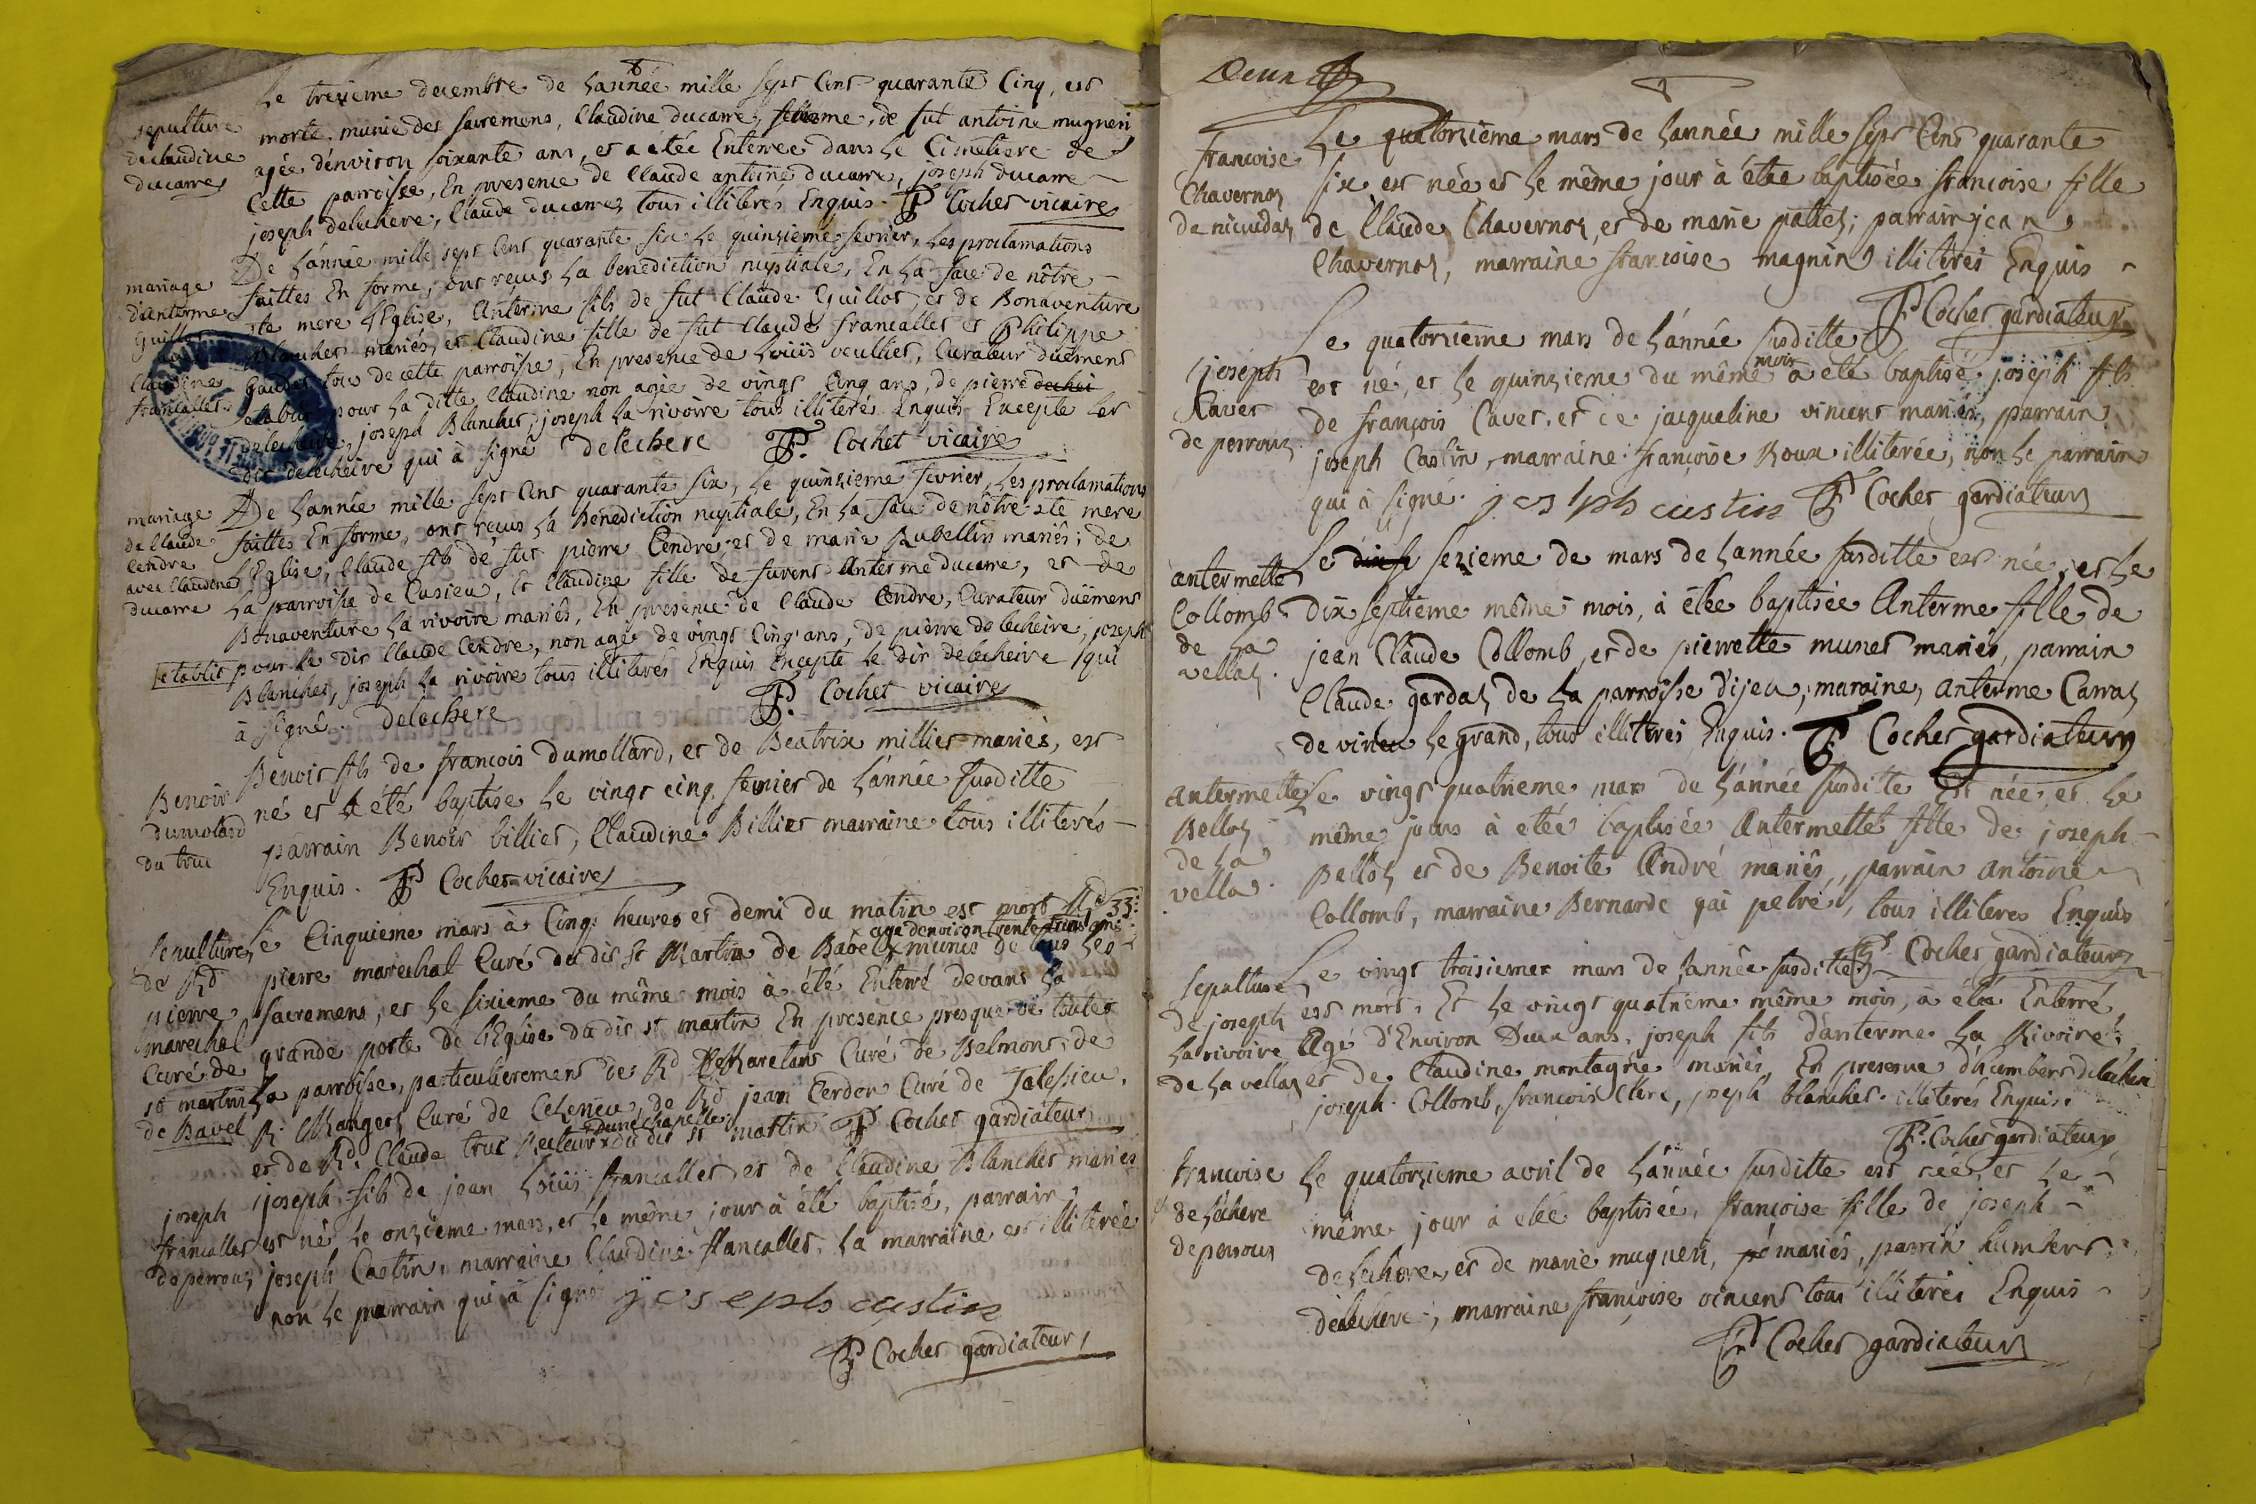 Le tresieme decembre de l'année mille sept cent quarante cinq, est
sepulture
de claudine
ducarre
morte munie des sacremens, Claudine ducarre, femme, de fût antoine mugneri
agée d'environ soixante ans, et a étée Enterrée dans le Cimetiere de
Cette parroisse, En presence de Claude antoine ducarre, joseph ducarre
joseph delechere, Claude ducarre, tous illiterés Enquis. P Cochet vicaire
mariage
d'anterme
guillot
Claudine
francallet
De l'année mille sept cent quarante six le quinzieme fevrier, les proclamations
faittes En forme, ont reçus la benediction nuptiale, En la face de nôtre
ste mere l'Eglise, Anterme fils de fut Claude Guillot, et de Bonaventure
Blanchet mariés, et Claudine fille de fut Claude francallet et Philippe
gaudet tous de cette parroisse, En presence de louis veullier, Curateur düement
etabli pour la ditte Claudine non agée de vingt Cinq ans, de pierre
delecheire, joseph Blanchet, joseph la rivoire tous illiterés Enquis Excepte le
dit delecheire qui à signé delechere P. Cochet vicaire
mariage
de Claude
Cendre
avec Claudine
ducarre
De l'année mille sept Cent quarante six, le quinzieme fevrier, les proclamations
faittes En forme, ont reçus la Benediction nuptiale, En la face de nôtre ste mere
l'Eglise, Claude fils de fut pierre Cendre et de marie Rubellin mariés; de
la parroisse de Cusieu, Et Claudine fille de fuvent Anterme ducarre, et de
Bonaventure la rivoire mariés, En presence de Claude Cendre, Curateur düement
etablit pour le dit Claude Cendre, non agée de vingt Cinq ans, de pierre delecheire, joseph
Blanchet, joseph la rivoire tous illiterés Enquis Excepte le dit delecheire qui
à signé. Delechere P. Cochet vicaire
Benoit
dumolard
du truc
Benoit fils de françois dumollard, et de Beatrix millier mariés, est
né et à été baptise le vingt cinq fevrier de l'année susditte
parrain Benoit billiet, Claudine Billiet marraine tous illiterés
Enquis. P Cochet vicaire
sepulture
de Rd
pierre
marechal
Curé de
st martin
de Bavel
Le Cinquieme mars à Cinq heures et demi du matin est mort Rd 33:
agé d'environ trente trois ans
pierre marechal Curé du dit st Martin de Bavel munis de tous les
sacremens, et le sixieme du même mois à été Enterré devant la
grande porte de l'Eglise du dit st martin En presence presque de toutes
la parroisse, particulierement de Rd Maretans Curé de Belmont, de
R. Manget, Curé de Ceherieu, de Rd jean Cerdon Curé de Talissieu,
d'une chapelle
et de Rd. Claude truc Recteur du dit st martin P Cochet gardiateur
joseph
francallet
de perrou
joseph fils de jean louis francallet, et de Claudine Blanchet mariés
est né le onzieme mars, et le même jour à été baptisé, parrain
joseph Castin, marraine Claudine francallet, la marraine est illiterée
non le parrain qui à signé joseph castin
P Cochet gardiateur
Deux
francoise
Chavernoz
de nicudaz
Le quatorzieme mars de l'année mille sept Cent quarante
six est née et le même jour à étée baptisée francoise fille
de Claude Chavernoz, et de marie pattez; parrain jean
Chavernoz, marraine francoise magnin illiterés Enquis
P Cochet gardiateur
joseph
Cavet
de perrouz
Le quatorzieme mars de l'année susditte
est né, et le quinzieme du même mois à été baptisé joseph fils
de françois Cavet et de jacqueline vincent mariés, parrain
joseph Castin, marraine françoise Roux illiterée, non le parrain
qui à signé. joseph castin P Cochet gardiateur
antermette
Collomb
de la
vellaz.
Le sezieme de mars de l'année susditte est née, et le
dix septieme même mois, à étée baptisée Anterme fille de
jean Claude Collomb, et de pierrette munet mariés, parrain
Claude gardaz de la parroisse d'ijeu, maraine, anterme Carraz
de virieu le grand, tous illiterés Enquis. P Cochet gardiateur
antermette
Belloz
de la
vella.
Le vingt quatrieme mars de l'année susditte Est née, et le
même jours à etée baptisée Antermette fille de joseph
Belloz et de Benoite André mariés, parrain antoine
Collomb, marraine Bernarde gai petré, tous illiteres Enquis
P Cochet gardiateur
sepulture
de joseph
la rivoire
de la vellaz
Le vingt troisieme mars de l'année susditte
est mort, Et le vingt quatrieme même mois, à été Enterré,
Agé d'Environ Deux ans, joseph fils d'anterme la Rivoire,
et de Claudine montagne mariés, En presence d'humbert delechere
joseph Collomb, francois Clerc, joseph blanchet illiterés Enquis.
P. Cochet gardiateur
francoise
de léchere
de perroux
Le quatorzieme avril de l'année susditte est née et le
même jour à étée baptisée, françoise fille de joseph
delechere, et de marie mugneri, mariés, parrin humbert
delechere; marraine françoise vincent tous illiterés Enquis
P Cochet gardiateur